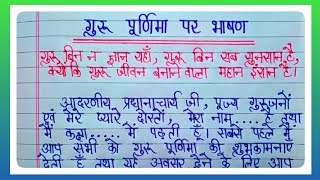 गुरु पूर्णिमा पर भाषण
गुरू बिन न ज्ञान यहाँ, गुरू बिन सब सुनसान है,
क्यों कि गुरू जीवन बनाने वाला महान इंसान है।
आदरणीय प्रधानाचार्य जी, पूज्य गुरूजनों
एवं मेरे प्यारे दोस्तों, मेरा नाम.... है तथा
मैं कक्षा..... में पढ़ती हूँ। सबसे पहले मैं
आप सभी को गुरू पूर्णिमा की शुभकामनाएं
देती हूँ तथा यह अवसर देने के लिए आप